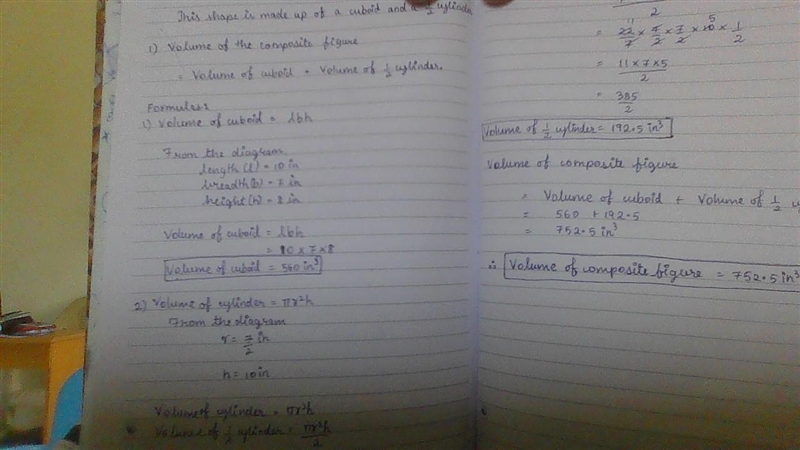 This shape is made up of a cuboid and a 1/2 cylinder
1) Volume of the composite figure
= Volume of cuboid + Volume of 1/2 cylinder.
Formulas:
1) Volume of cuboid = lbh
From the diagram,
length (l) = 10 in
breadth (b) = 7 in
height (h) = 8 in
Volume of cuboid = lbh
= 10 × 7 × 8
Volume of cuboid = 560 in³
2) Volume of cylinder = πr²h
From the diagram
r = 7/2 in
h = 10 in
Volume of cylinder = πr²h
Volume of 1/2 cylinder = πr²h/2
2
= 22/7 × 7/2 × 7/2 × 10 × 1/2
11 5
= 11 × 7 × 5 / 2
= 385/2
Volume of 1/2 cylinder = 192.5 in³
Volume of composite figure
= Volume of cuboid + Volume of 1/2
= 560 + 192.5
= 752.5 in³
∴ Volume of composite figure = 752.5 in³